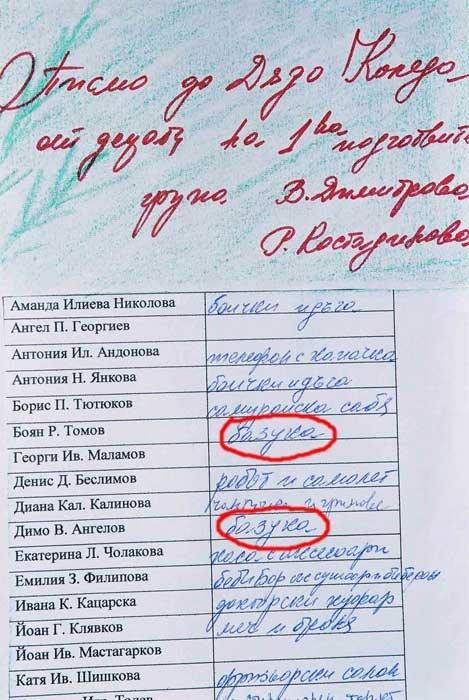 Писмо до Дядо Коледа
от децата на 1ва подготвит.
група В. Димитрова
Р. Костадинова
Аманда Илиева Николова всички неща
Ангел П. Георгиев
Антония Ил. Андонова телефон с копчета
Антония Н. Янкова всички неща
Борис П. Тютюков самурайска сабя
Боян Р. Томов базука
Георги Ив. Маламов
Денис Д. Беслимов робот и самолет
Диана Кал. Калинова и гримове
Димо В. Ангелов базука
Екатерина Л. Чолакова
Емилия З. Филипова
Ивана К. Кацарска докторски куфар
Йоан Г. Клявков меч и броня
Йоан Ив. Мастагарков
Катя Ив. Шишкова фризьорски салон